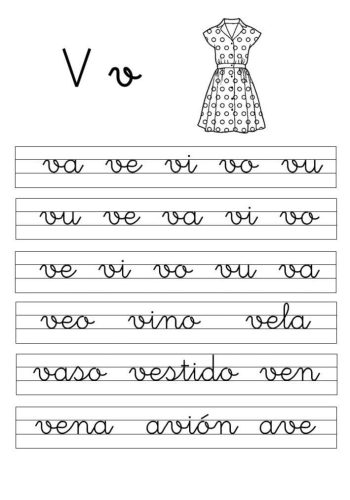 V v
va ve vi vo vu
vu ve va vi vo
ve vi vo vu va
veo vino vela
vaso vestido ven
vena avión ave